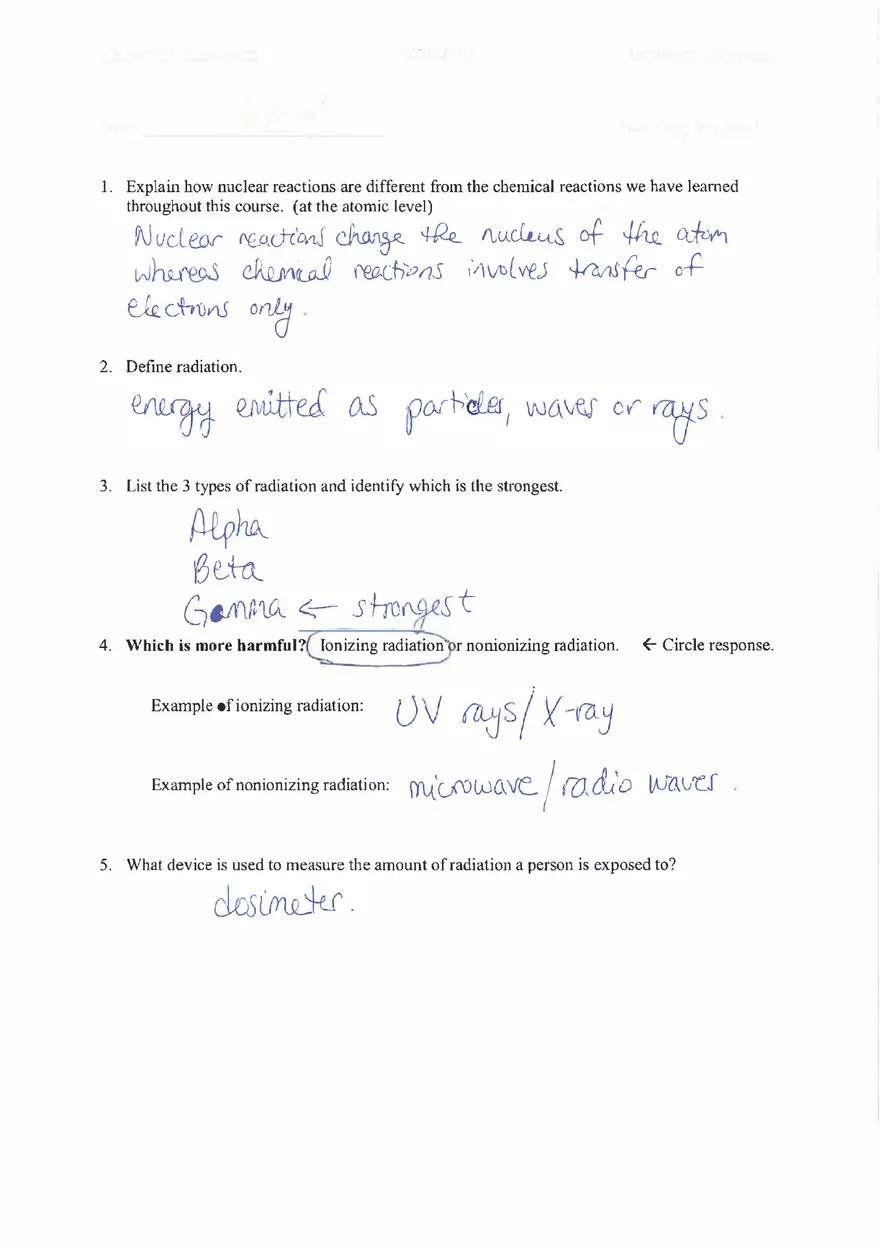 1. Explain how nuclear reactions are different from the chemical reactions we have learned
throughout this course. (at the atomic level)
Nuclear reactions change the nucleus of the atom
whereas chemical reactions involves transfer of
electrons only.
2. Define radiation.
energy emitted as particles, waves or rays.
3. List the 3 types of radiation and identify which is the strongest.
Alpha
Beta
Gamma ← strongest
4. Which is more harmful? Ionizing radiation or nonionizing radiation. ← Circle response.
Example of ionizing radiation: UV rays/X-ray
Example of nonionizing radiation: microwave/radio waves.
5. What device is used to measure the amount of radiation a person is exposed to?
dosimeter.